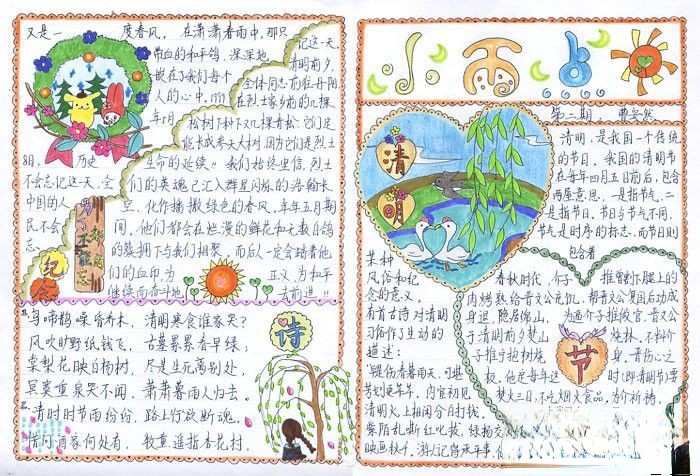 又是一 度春风，在潇潇春雨中，那只
带血的和平鸽，深深地
嵌在了我们每个
人的心中，1999
年5月
8日，历史
不会忘记这一天，全
中国的人
民不会
忘
记这一天，
清明前夕，
全体同志前往丹阳
在烈士家乡前的几棵
松树下种下几棵青松它们定
能长成参天大树，因为它们是烈士
生命的延续！！我们始终坚信，烈士
们的英魂已汇入群星闪烁的浩翰长
空，化作播撒绿色的春风，年年五月期
间，他们都会在烂漫的鲜花和无数白鸽
的簇拥下与我们相聚，而后人一定会踏着他
们的血印为 正义 为和平
继续而奋斗地 去前进！！
纪念
鸟啼鹊噪昏乔木，清明寒食谁家哭？
风吹旷野纸钱飞，古墓累累春草绿，
棠梨花映白杨树，尽是生死离别处
冥莫重泉哭不闻，萧萧暮雨人归去。
清明时节雨纷纷，路上行人欲断魂，
借问酒家何处有，牧童遥指杏花村，
诗
小雨点
第二期 曹安然
清明
清明，是我国一个传统
的节日，我国的清明节
在每年四月五日前后，包含
两层意思，一是指节气，二
是指节日，节日与节气不同，
节气是时序的标志，而节日则
包含着
某种
风俗和纪
念的意义，
有首古诗对清明
习俗作了生动的
描述：
春秋时代，介子 推曾割下腿上的
肉烤熟给晋文公充饥，帮晋文公复国后功成
身退，隐居绵山，
于清明前夕焚山 烧林，不料介
子推宁抱树烧 身，晋伤心之
极，他定每年这 时(即清明节)禁
焚火三日，不吃烟火食品，为介祈祷，
节
清明火上相闲分白打钱，
紫陌乱嘶红叱拨，绿杨
映画秋千，游人记得承平事，